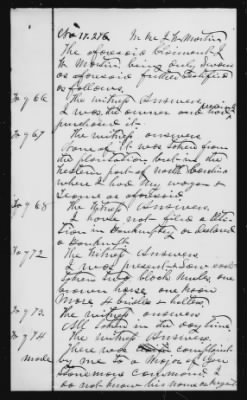 No 17.276
The aforesaid Claimant J
W. Morton being duly sworn
as aforesaid further testifies
as follows.
To q 66 The witness Answers
I was the owner and have
purchased it.
To q 67 The witness answers
None of it was taken from
the plantation, but in the
western part of North Carolina
where I had my wagon &
teams as aforesaid
To q 68 The Witness Answers.
I have not filed a Peti-
tion in bankruptcy or declared
a bankrupt.
To q 72 The Witness Answers
I was present & saw
others who took mules one
brown horse, one roan
mare 4 bridles & halters,
To q 73. The witness answers
All taken in the day time,
To q 74 The Witness Answers.
There was complaint
made by me to a Major of Gen
Stonemans command I
do not know his name or